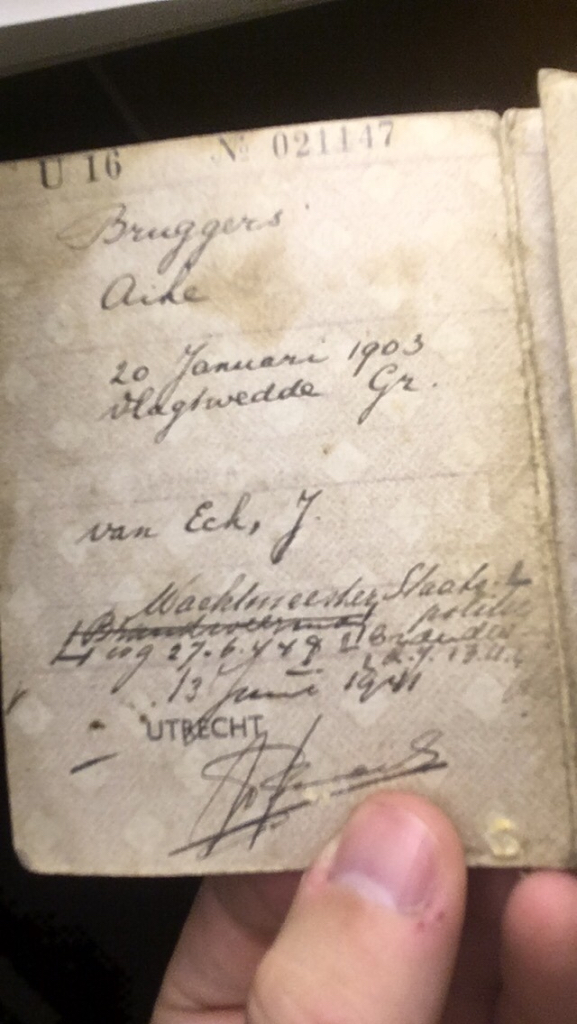 U 16 No 021147
Bruggers
Aike
20 Januari 1903
Vlagtwedde Gr.
van Eck, J.
Wachtmeester Staats
Brandweerman politie
27.6.
13 Juni 1941
UTRECHT